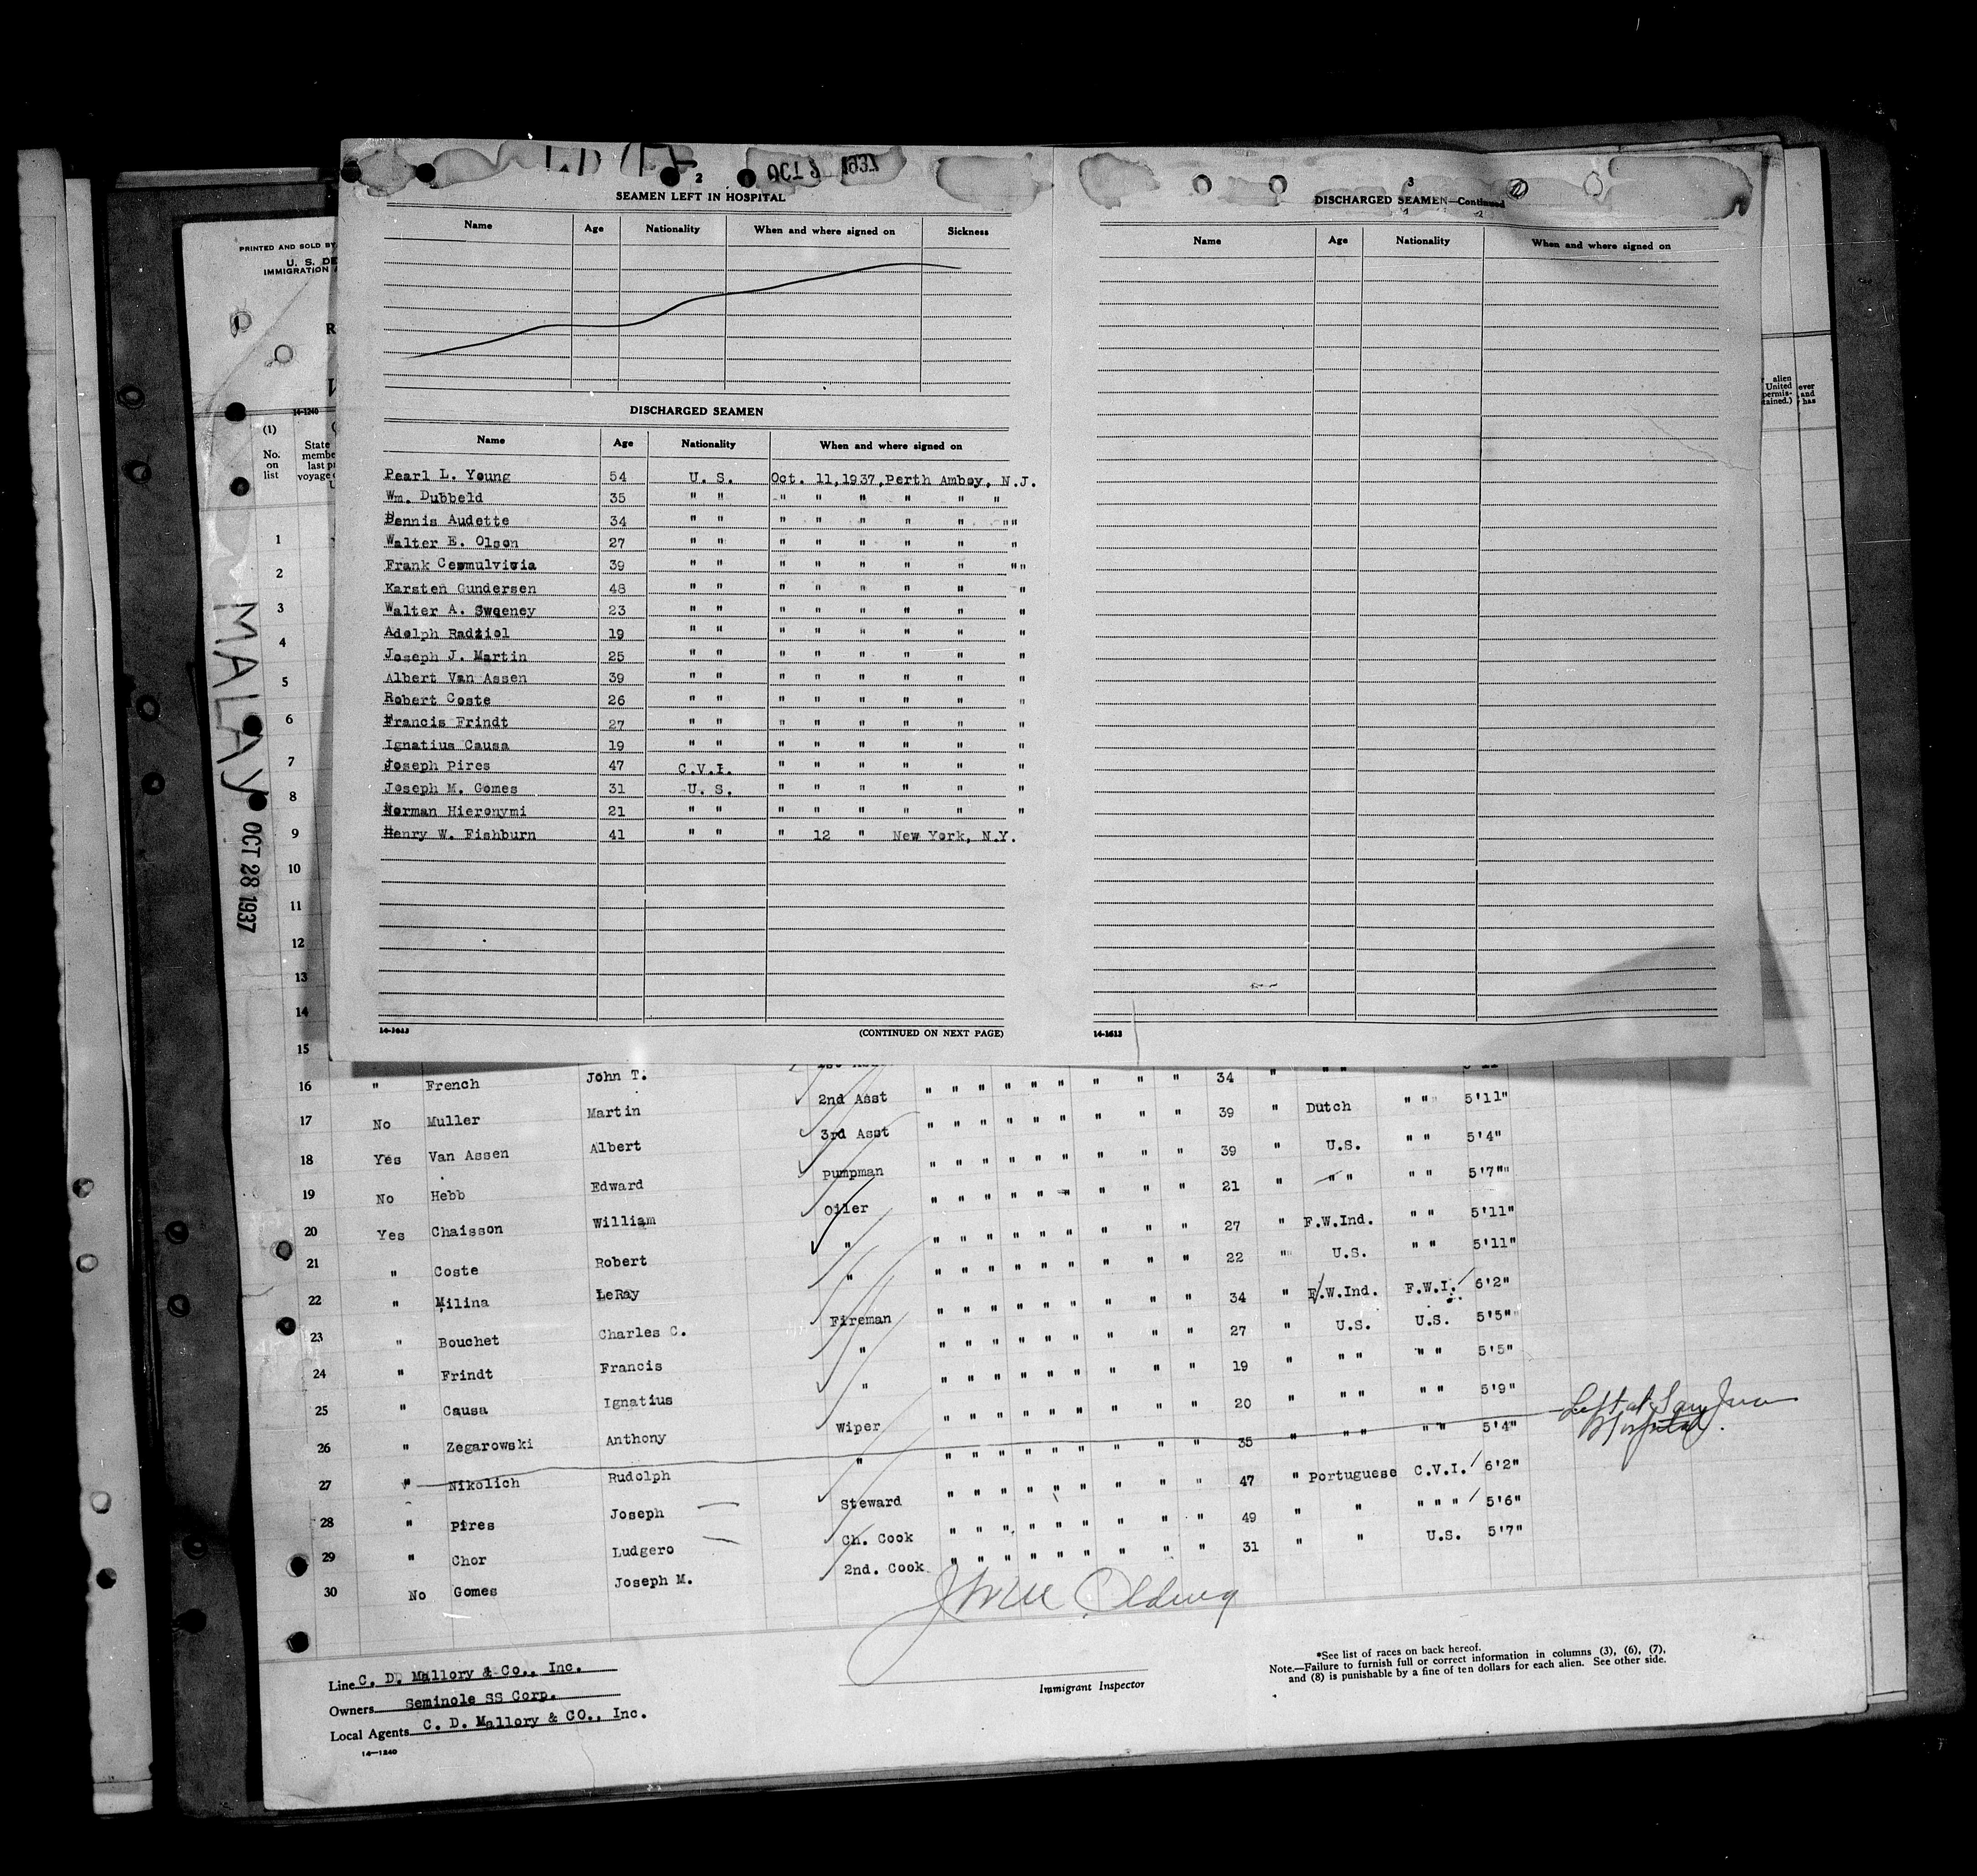 OCT 1937
2
SEAMEN LEFT IN HOSPITAL
Name Age Nationality When and where signed on Sickness
DISCHARGED SEAMEN
Name Age Nationality When and where signed on
Pearl L. Young 54 U. S. Oct. 11,1937,Perth Amboy, N.J.
Wm. Dubbeld 35 " " " " " " " "
Dennis Audette 34 " " " " " " " ""
Walter E. Olson 27 " " " " " " " "
Frank 39 " " " " " " " ""
Karsten Gundersen 48 " " " " " " " "
Walter A. Sweeney 23 " " " " " " " "
Adolph Radziol 19 " " " " " " " "
Joseph J. Martin 25 " " " " " " " "
Albert Van Assen 39 " " " " " " " "
Robert Coste 26 " " " " " " " "
Francis Frindt 27 " " " " " " " "
Ignatius Causa 19 " " " " " " " "
Joseph Pires 47 C.V.I. " " " " " "
Joseph M. Gomes 31 U. S. " " " " " "
Norman Hieronymi 21 " " " " " " " "
Henry W. Fishburn 41 " " " 12 " New York, N.Y.
14-1613 (CONTINUED ON NEXT PAGE)
3
DISCHARGED SEAMEN—Continued
Name Age Nationality When and where signed on
14-1613
PRINTED AND SOLD BY
U. S. DE
IMMIGRATION
R
14-1240
(1)
No. on list
State
membe
last p
voyage
alien
United
permis-
tained.)
ever
and
has
MALAY
OCT 28 1937
1
2
3
4
5
6
7
8
9
10
11
12
13
14
15
16 " French John T. 2nd Asst " " " " " " " " " 34 " " " 5'11"
17 No Muller Martin 3rd Asst " " " " " " " " " 39 " Dutch " " 5'11"
18 Yes Van Assen Albert Pumpman " " " " " " " " " 39 " U.S. " " 5'4"
19 No Hebb Edward Oiler " " " " " " " " " 21 " " " " " 5'7"
20 Yes Chaisson William " " " " " " " " " " 27 " F.W.Ind. " " 5'11"
21 " Coste Robert " " " " " " " " " " 22 " U.S. " " 5'11"
22 " Milina LeRay Fireman " " " " " " " " " 34 " F.W.Ind. F.W.I. 6'2"
23 " Bouchet Charles C. " " " " " " " " " " 27 " U.S. U.S. 5'5"
24 " Frindt Francis " " " " " " " " " " 19 " " " " " 5'5"
25 " Causa Ignatius Wiper " " " " " " " " " 20 " " " " " 5'9"
26 " Zegarowski Anthony " " " " " " " " " " 35 " " " " " 5'4" Left at San Juan Hospital.
27 " Nikolich Rudolph Steward " " " " " " " " " 47 " Portuguese C.V.I. 6'2"
28 " Pires Joseph Ch. Cook " " " " " " " " " 49 " " " " " 5'6"
29 " Chor Ludgero 2nd. Cook " " " " " " " " " 31 " " U.S. 5'7"
30 No Gomes Joseph M.
Line C. D. Mallory & Co., Inc.
Owners Seminole SS Corp.
Local Agents C. D. Mallory & CO., Inc.
14—1240
Immigrant Inspector
*See list of races on back hereof.
Note.—Failure to furnish full or correct information in columns (3), (6), (7),
and (8) is punishable by a fine of ten dollars for each alien. See other side.